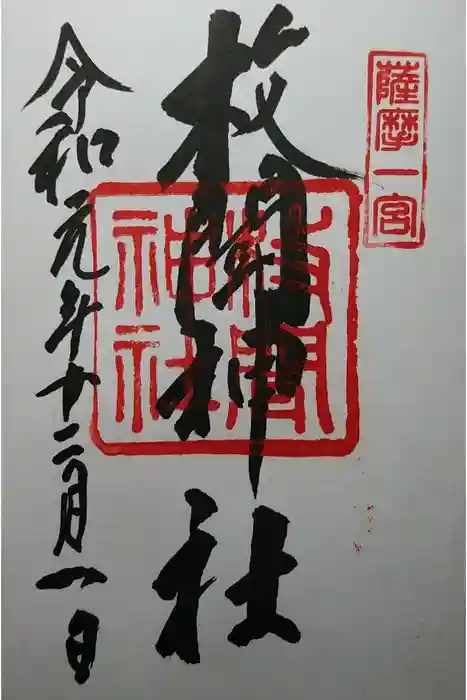 薩摩一宮
枚聞神社
枚聞
神社
令和元年十二月一日